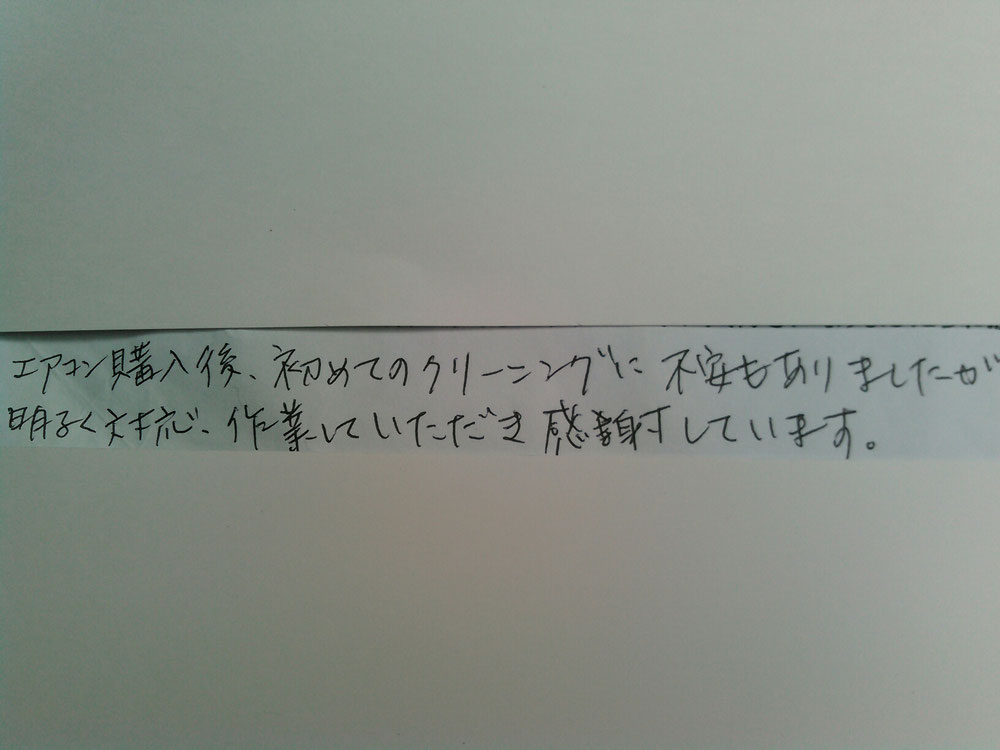 エアコン購入後、初めてのクリーニングに不安もありましたが
明るく対応、作業していただき感謝しています。